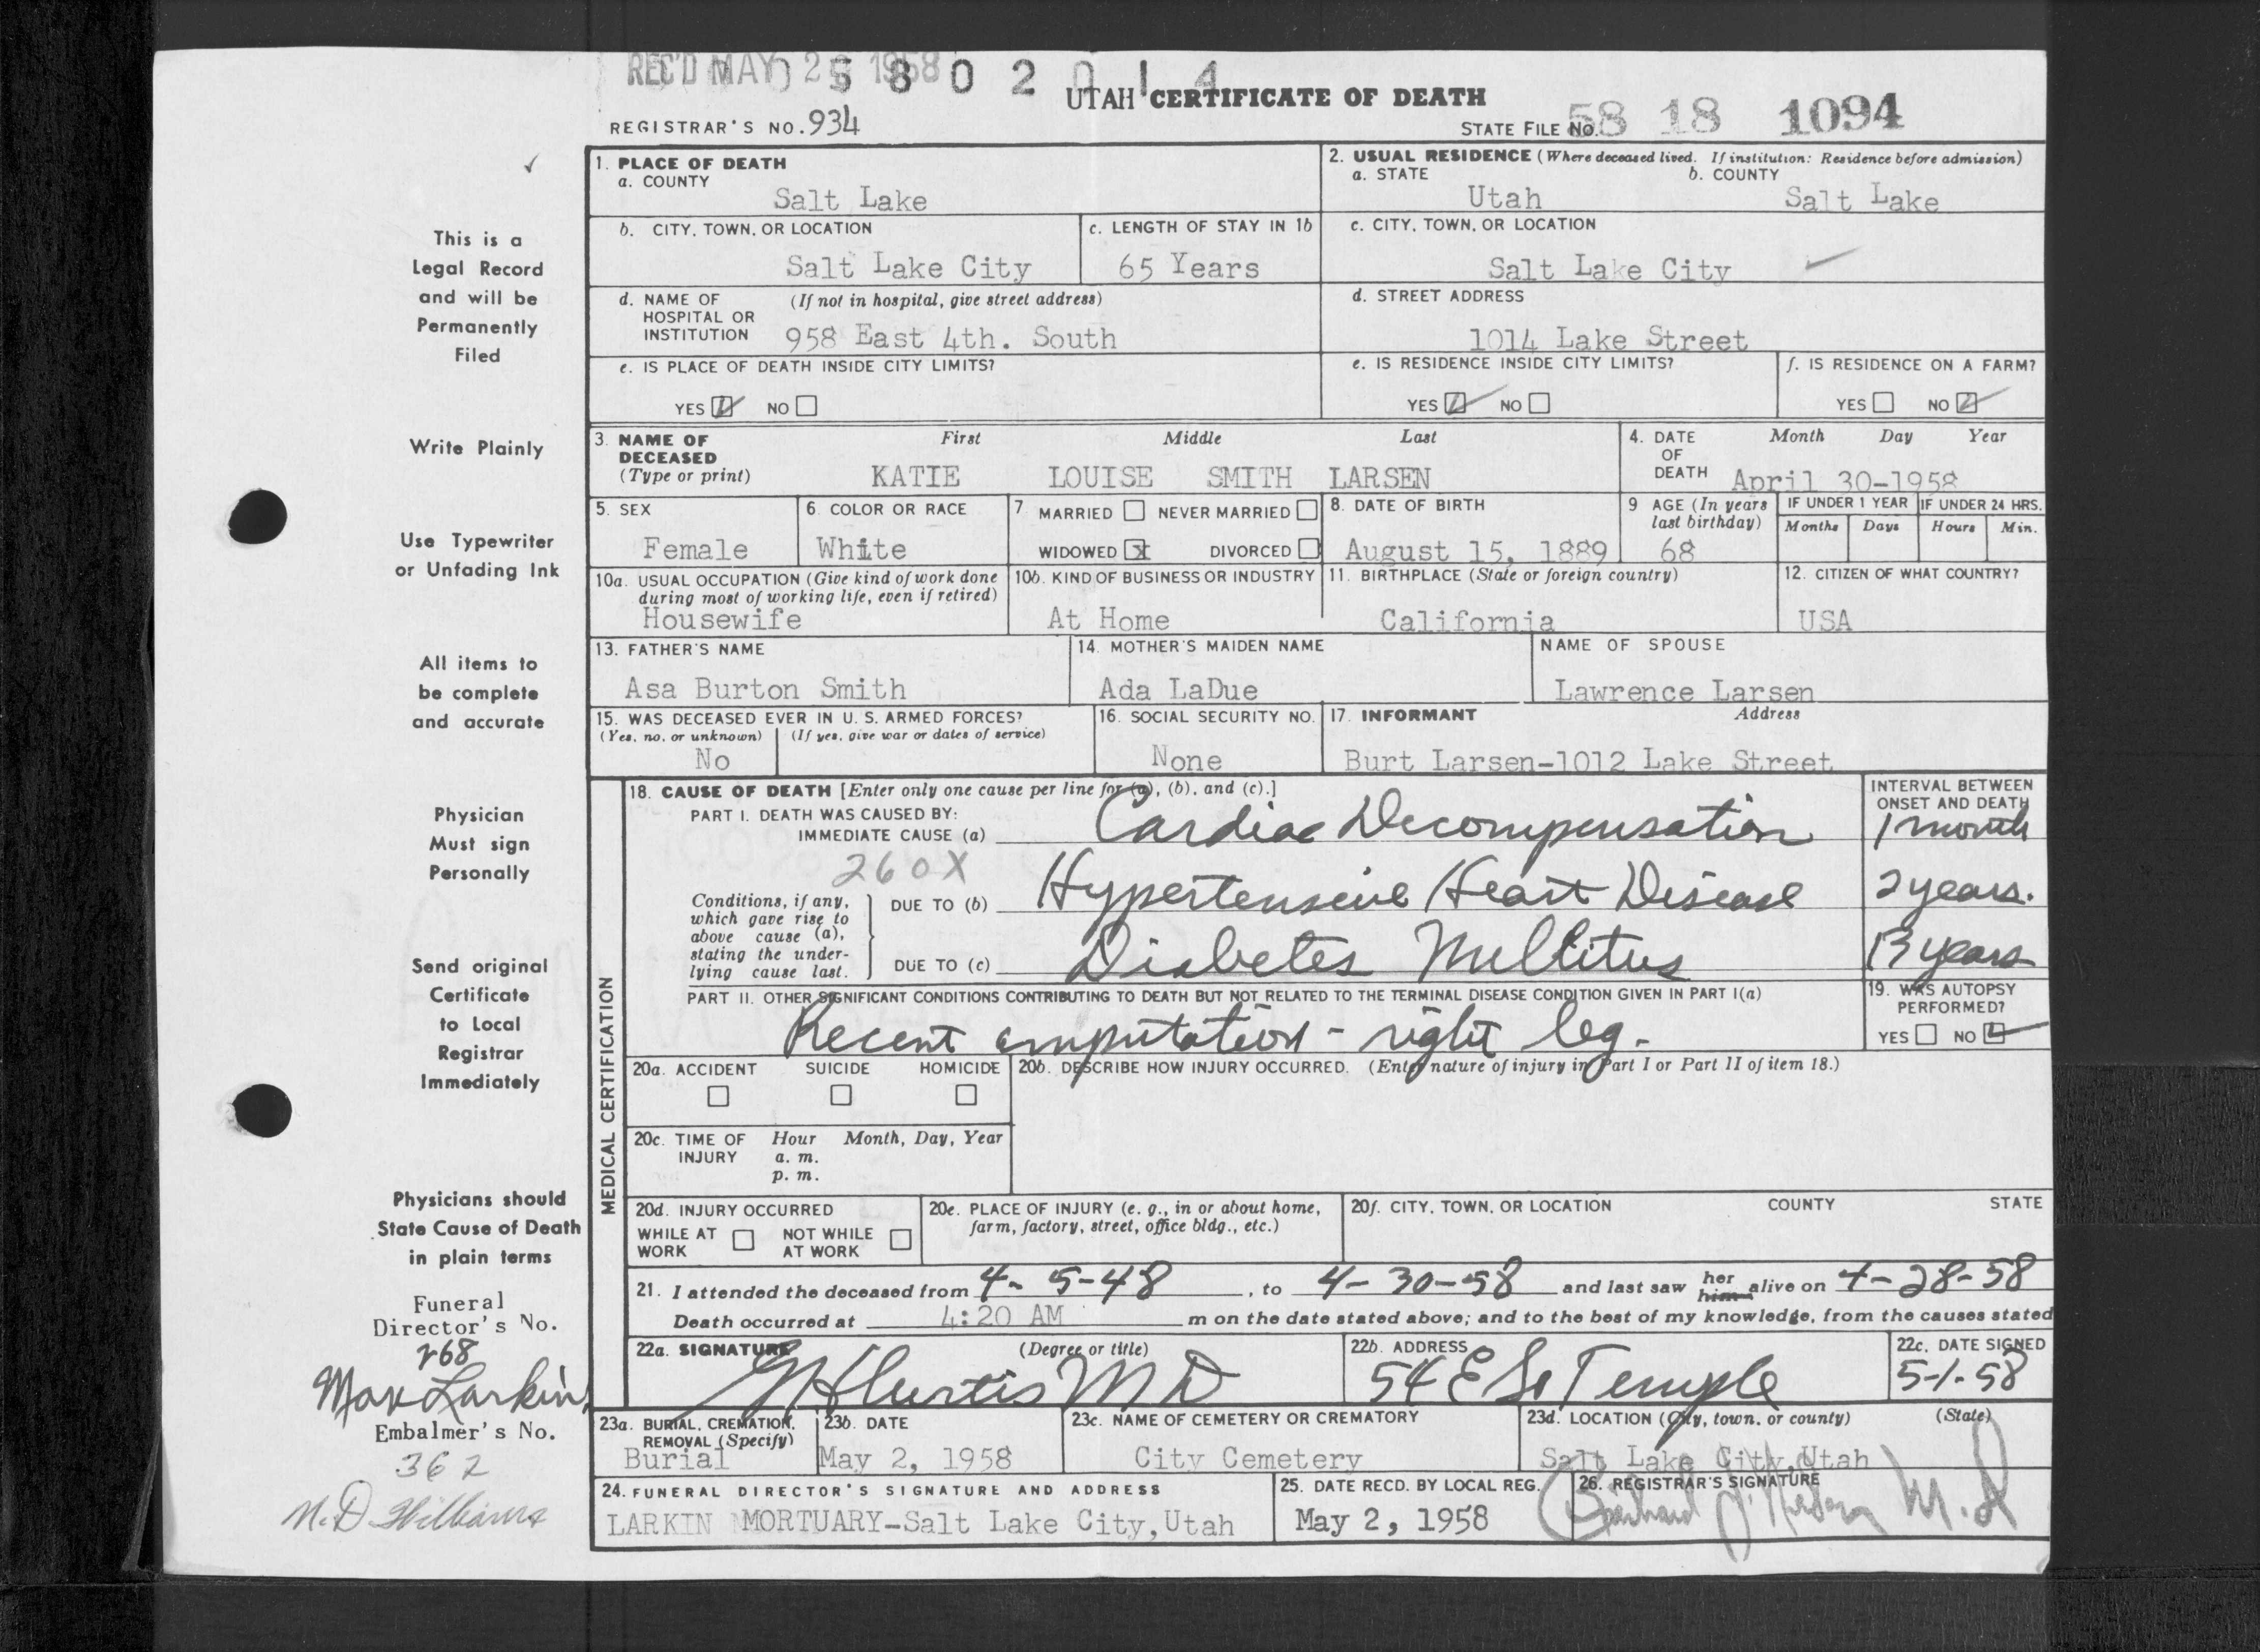 REC'D MAY 2 1958
5 8 0 2 0 1 4
UTAH CERTIFICATE OF DEATH
REGISTRAR'S NO. 934
STATE FILE NO. 58 18 1094
This is a
Legal Record
and will be
Permanently
Filed
Write Plainly
Use Typewriter
or Unfading Ink
All items to
be complete
and accurate
Physician
Must sign
Personally
Send original
Certificate
to Local
Registrar
Immediately
Physicians should
State Cause of Death
in plain terms
Funeral
Director's No.
268
Max Larkin
Embalmer's No.
362
N. D. Williams
1. PLACE OF DEATH
a. COUNTY
Salt Lake
2. USUAL RESIDENCE (Where deceased lived. If institution: Residence before admission)
a. STATE b. COUNTY
Utah Salt Lake
b. CITY, TOWN, OR LOCATION
Salt Lake City
c. LENGTH OF STAY IN 1b
65 Years
c. CITY, TOWN, OR LOCATION
Salt Lake City
d. NAME OF (If not in hospital, give street address)
HOSPITAL OR
INSTITUTION 958 East 4th. South
d. STREET ADDRESS
1014 Lake Street
e. IS PLACE OF DEATH INSIDE CITY LIMITS?
YES NO
e. IS RESIDENCE INSIDE CITY LIMITS?
YES NO
f. IS RESIDENCE ON A FARM?
YES NO
3. NAME OF First Middle Last
DECEASED
(Type or print) KATIE LOUISE SMITH LARSEN
4. DATE Month Day Year
OF
DEATH April 30-1958
5. SEX
Female
6. COLOR OR RACE
White
7 MARRIED NEVER MARRIED
WIDOWED X DIVORCED
8. DATE OF BIRTH
August 15, 1889
9 AGE (In years
last birthday)
68
IF UNDER 1 YEAR IF UNDER 24 HRS.
Months Days Hours Min.
10a. USUAL OCCUPATION (Give kind of work done
during most of working life, even if retired)
Housewife
10b. KIND OF BUSINESS OR INDUSTRY
At Home
11. BIRTHPLACE (State or foreign country)
California
12. CITIZEN OF WHAT COUNTRY?
USA
13. FATHER'S NAME
Asa Burton Smith
14. MOTHER'S MAIDEN NAME
Ada LaDue
NAME OF SPOUSE
Lawrence Larsen
15. WAS DECEASED EVER IN U. S. ARMED FORCES?
(Yes, no, or unknown) (If yes, give war or dates of service)
No
16. SOCIAL SECURITY NO.
None
17. INFORMANT Address
Burt Larsen-1012 Lake Street
MEDICAL CERTIFICATION
18. CAUSE OF DEATH [Enter only one cause per line for (a), (b), and (c).]
PART I. DEATH WAS CAUSED BY:
IMMEDIATE CAUSE (a) Cardiac Decompensation
INTERVAL BETWEEN
ONSET AND DEATH
1 month
260X
Conditions, if any,
which gave rise to
above cause (a),
stating the under-
lying cause last.
DUE TO (b) Hypertensive Heart Disease 2 years.
DUE TO (c) Diabetes Mellitus 13 years
PART II. OTHER SIGNIFICANT CONDITIONS CONTRIBUTING TO DEATH BUT NOT RELATED TO THE TERMINAL DISEASE CONDITION GIVEN IN PART I(a)
Recent amputation - right leg.
19. WAS AUTOPSY
PERFORMED?
YES NO
20a. ACCIDENT SUICIDE HOMICIDE
20b. DESCRIBE HOW INJURY OCCURRED. (Enter nature of injury in Part I or Part II of item 18.)
20c. TIME OF Hour Month, Day, Year
INJURY a. m.
p. m.
20d. INJURY OCCURRED
WHILE AT NOT WHILE
WORK AT WORK
20e. PLACE OF INJURY (e. g., in or about home,
farm, factory, street, office bldg., etc.)
20f. CITY, TOWN, OR LOCATION COUNTY STATE
21. I attended the deceased from 4- 5-48, to 4-30-58 and last saw her him alive on 4-28-58
Death occurred at 4:20 AM m on the date stated above; and to the best of my knowledge, from the causes stated
22a. SIGNATURE (Degree or title)
Curtis MD
22b. ADDRESS
54 E So Temple
22c. DATE SIGNED
5-1-58
23a. BURIAL, CREMATION,
REMOVAL (Specify)
Burial
23b. DATE
May 2, 1958
23c. NAME OF CEMETERY OR CREMATORY
City Cemetery
23d. LOCATION (City, town, or county) (State)
Salt Lake City, Utah
24. FUNERAL DIRECTOR'S SIGNATURE AND ADDRESS
LARKIN MORTUARY-Salt Lake City, Utah
25. DATE RECD. BY LOCAL REG.
May 2, 1958
26. REGISTRAR'S SIGNATURE
M.D